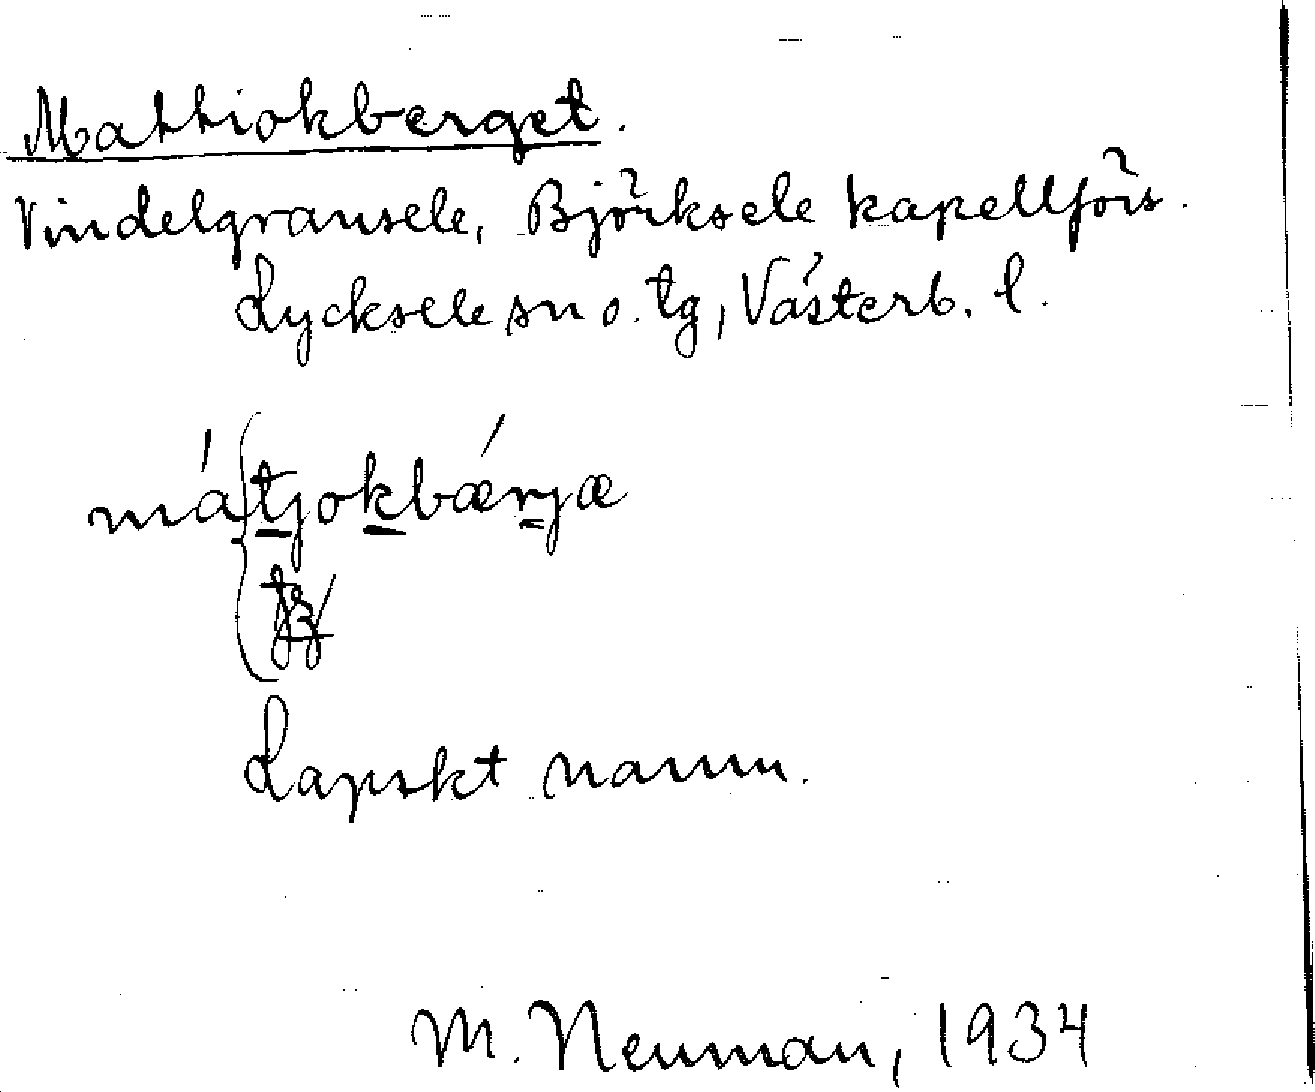 Mattiokberget.
Vindelgransele, Björksele kapellförs.
Lycksele sn o. tg, Västerb. l.
má{tjokbǽrjæ
Lapskt namn.
M. Neuman, 1934